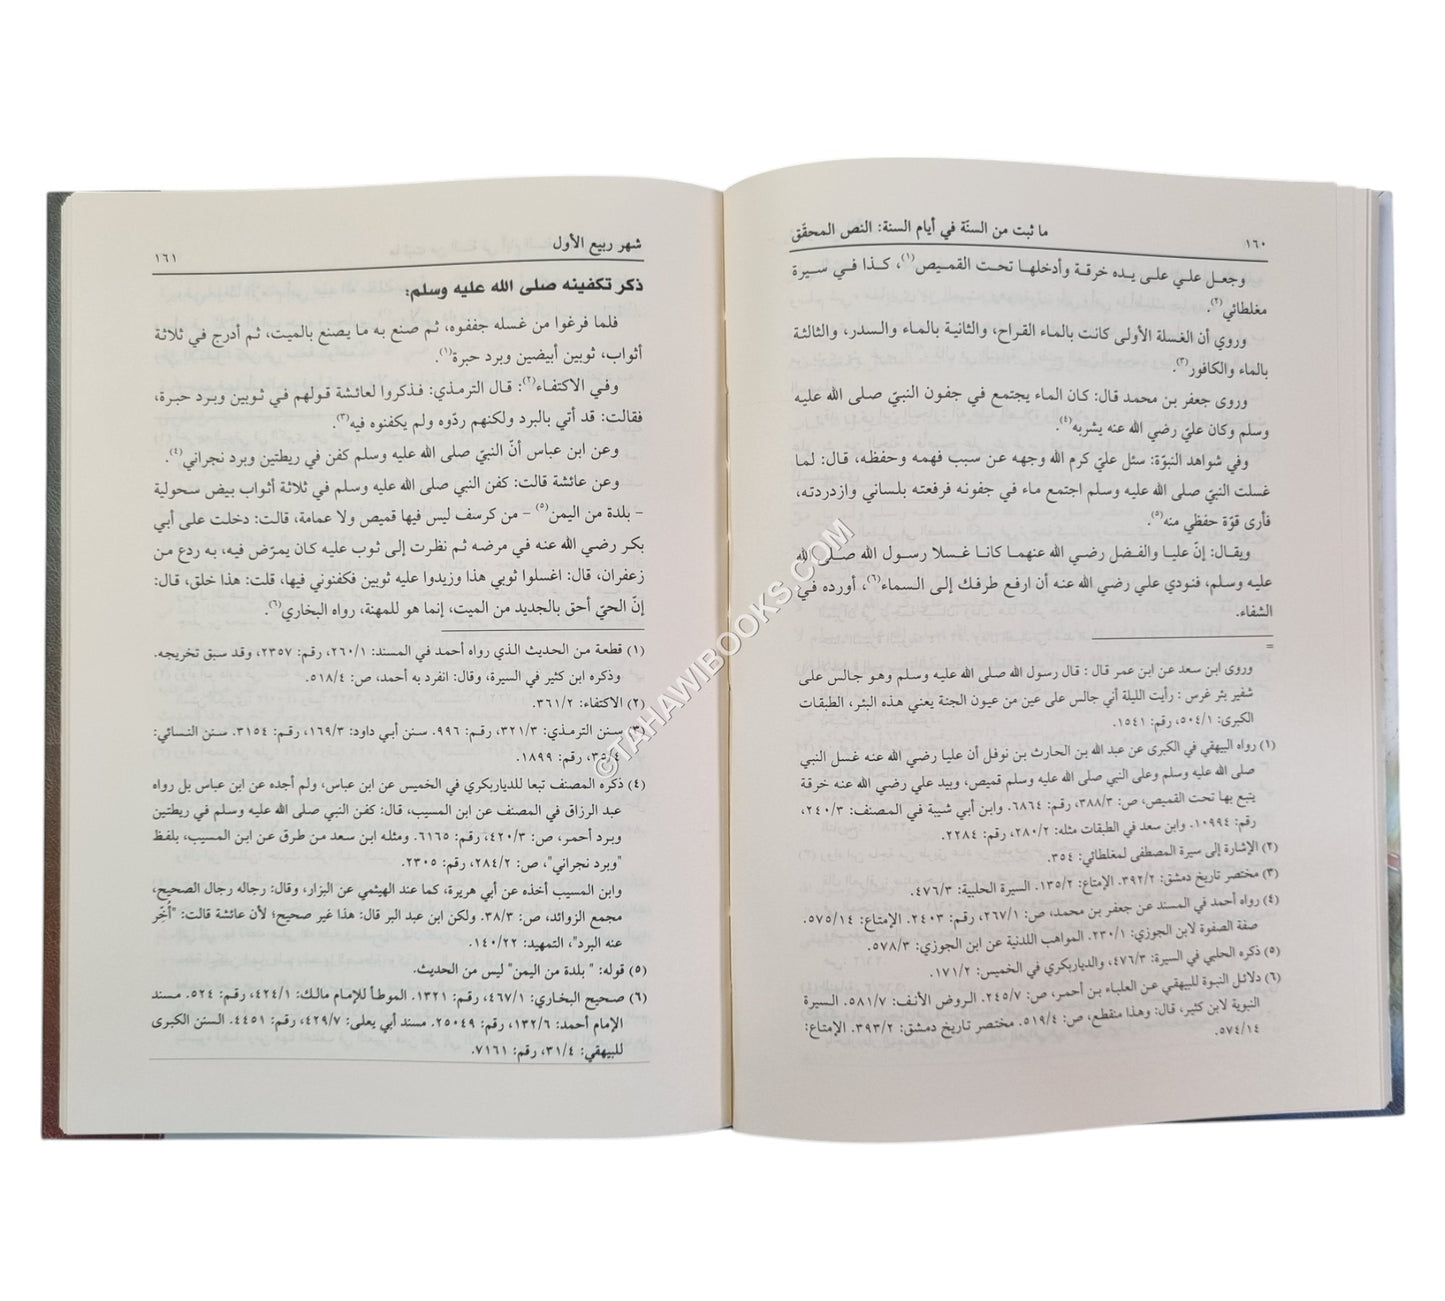 ١٦٠
ما ثبت من السنّة في أيام السنة: النص المحقّق
وجعل علي على يده خرقة وأدخلها تحت القميص(١)، كذا في سيرة
مغلطائي(٢).
وروي أن الغسلة الأولى كانت بالماء القراح، والثانية بالماء والسدر، والثالثة
بالماء والكافور(٣).
وروى جعفر بن محمد قال: كان الماء يجتمع في جفون النبيّ صلى الله عليه
وسلم وكان عليّ رضي الله عنه يشربه(٤).
وفي شواهد النبوّة: سئل عليّ كرم الله وجهه عن سبب فهمه وحفظه، قال: لما
غسلت النبيّ صلى الله عليه وسلم اجتمع ماء في جفونه فرفعته بلساني وازدردته،
فأرى قوّة حفظي منه(٥).
ويقال: إنّ عليا والفضل رضي الله عنهما كانا غسلا رسول الله صلى الله
عليه وسلم، فنودي علي رضي الله عنه أن ارفع طرفك إلى السماء(٦)، أورده في
الشفاء.
=
وروى ابن سعد عن ابن عمر قال : قال رسول الله صلى الله عليه وسلم وهو جالس على
شفير بئر غرس : رأيت الليلة أني جالس على عين من عيون الجنة يعني هذه البئر، الطبقات
الكبرى: ٥٠٤/١، رقم: ١٥٤١.
(١) رواه البيهقي في الكبرى عن عبد الله بن الحارث بن نوفل أن عليا رضي الله عنه غسل النبي
صلى الله عليه وسلم وعلى النبي صلى الله عليه وسلم قميص، وبيد علي رضي الله عنه خرقة
يتبع بها تحت القميص، ص: ٣٨٨/٣، رقم: ٦٨٦٤. وابن أبي شيبة في المصنف: ٢٤٠/٣،
رقم: ١٠٩٩٤. وابن سعد في الطبقات مثله: ٢٨٠/٢، رقم: ٢٢٨٤.
(٢) الإشارة إلى سيرة المصطفى لمغلطائي: ٣٥٤.
(٣) مختصر تاريخ دمشق: ٣٩٢/٢. الإمتاع: ١٣٥/٢. السيرة الحلبية: ٤٧٦/٣.
(٤) رواه أحمد في المسند عن جعفر بن محمد، ص: ٢٦٧/١، رقم: ٢٤٠٣. الإمتاع: ٥٧٥/١٤.
صفة الصفوة لابن الجوزي: ٢٣٠/١. المواهب اللدنية عن ابن الجوزي: ٥٧٨/٣.
(٥) ذكره الحلبي في السيرة: ٤٧٦/٣، والدياربكري في الخميس: ١٧١/٢.
(٦) دلائل النبوة للبيهقي عن العلباء بن أحمر، ص: ٢٤٥/٧. الروض الأنف: ٥٨١/٧. السيرة
النبوية لابن كثير، قال: وهذا منقطع، ص: ٥١٩/٤. مختصر تاريخ دمشق: ٣٩٣/٢. الإمتاع:
٥٧٤/١٤.
شهر ربيع الأول
١٦١
ذكر تكفينه صلى الله عليه وسلم:
فلما فرغوا من غسله جففوه، ثم صنع به ما يصنع بالميت، ثم أدرج في ثلاثة
أثواب، ثوبين أبيضين وبرد حبرة(١).
وفي الاكتفاء(٢): قال الترمذي: فذكروا لعائشة قولهم في ثوبين وبرد حبرة،
فقالت: قد أتي بالبرد ولكنهم ردّوه ولم يكفنوه فيه(٣).
وعن ابن عباس أنّ النبيّ صلى الله عليه وسلم كفن في ريطتين وبرد نجراني(٤).
وعن عائشة قالت: كفن النبي صلى الله عليه وسلم في ثلاثة أثواب بيض سحولية
- بلدة من اليمن(٥) - من كرسف ليس فيها قميص ولا عمامة، قالت: دخلت على أبي
بكر رضي الله عنه في مرضه ثم نظرت إلى ثوب عليه كان يمرّض فيه، به ردع من
زعفران، قال: اغسلوا ثوبي هذا وزيدوا عليه ثوبين فكفنوني فيها، قلت: هذا خلق، قال:
إنّ الحيّ أحق بالجديد من الميت، إنما هو للمهنة، رواه البخاري(٦).
(١) قطعة من الحديث الذي رواه أحمد في المسند: ٢٦٠/١، رقم: ٢٣٥٧، وقد سبق تخريجه.
وذكره ابن كثير في السيرة، وقال: انفرد به أحمد، ص: ٥١٨/٤.
(٢) الاكتفاء: ٣٦١/٢.
(٣) سنن الترمذي: ٣٢١/٣، رقم: ٩٩٦. سنن أبي داود: ١٦٩/٣، رقم: ٣١٥٤. سنن النسائي:
٣٥/٤، رقم: ١٨٩٩.
(٤) ذكره المصنف تبعا للدياربكري في الخميس عن ابن عباس، ولم أجده عن ابن عباس بل رواه
عبد الرزاق في المصنف عن ابن المسيب، قال: كفن النبي صلى الله عليه وسلم في ريطتين
وبرد أحمر، ص: ٤٢٠/٣، رقم: ٦١٦٥. ومثله ابن سعد من طرق عن ابن المسيب، بلفظ
"وبرد نجراني"، ص: ٢٨٤/٢، رقم: ٢٣٠٥.
وابن المسيب أخذه عن أبي هريرة، كما عند الهيثمي عن البزار، وقال: رجاله رجال الصحيح،
مجمع الزوائد، ص: ٣٨/٣. ولكن ابن عبد البر قال: هذا غير صحيح؛ لأن عائشة قالت: "أُخِّر
عنه البرد"، التمهيد: ١٤٠/٢٢.
(٥) قوله: " بلدة من اليمن" ليس من الحديث.
(٦) صحيح البخاري: ٤٦٧/١، رقم: ١٣٢١. الموطأ للإمام مالك: ٤٢٤/١، رقم: ٥٢٤. مسند
الإمام أحمد: ١٣٢/٦، رقم: ٢٥٠٤٩. مسند أبي يعلى: ٤٢٩/٧، رقم: ٤٤٥١. السنن الكبرى
للبيهقي: ٣١/٤، رقم: ٧١٦١.
©TAHAWIBOOKS.COM